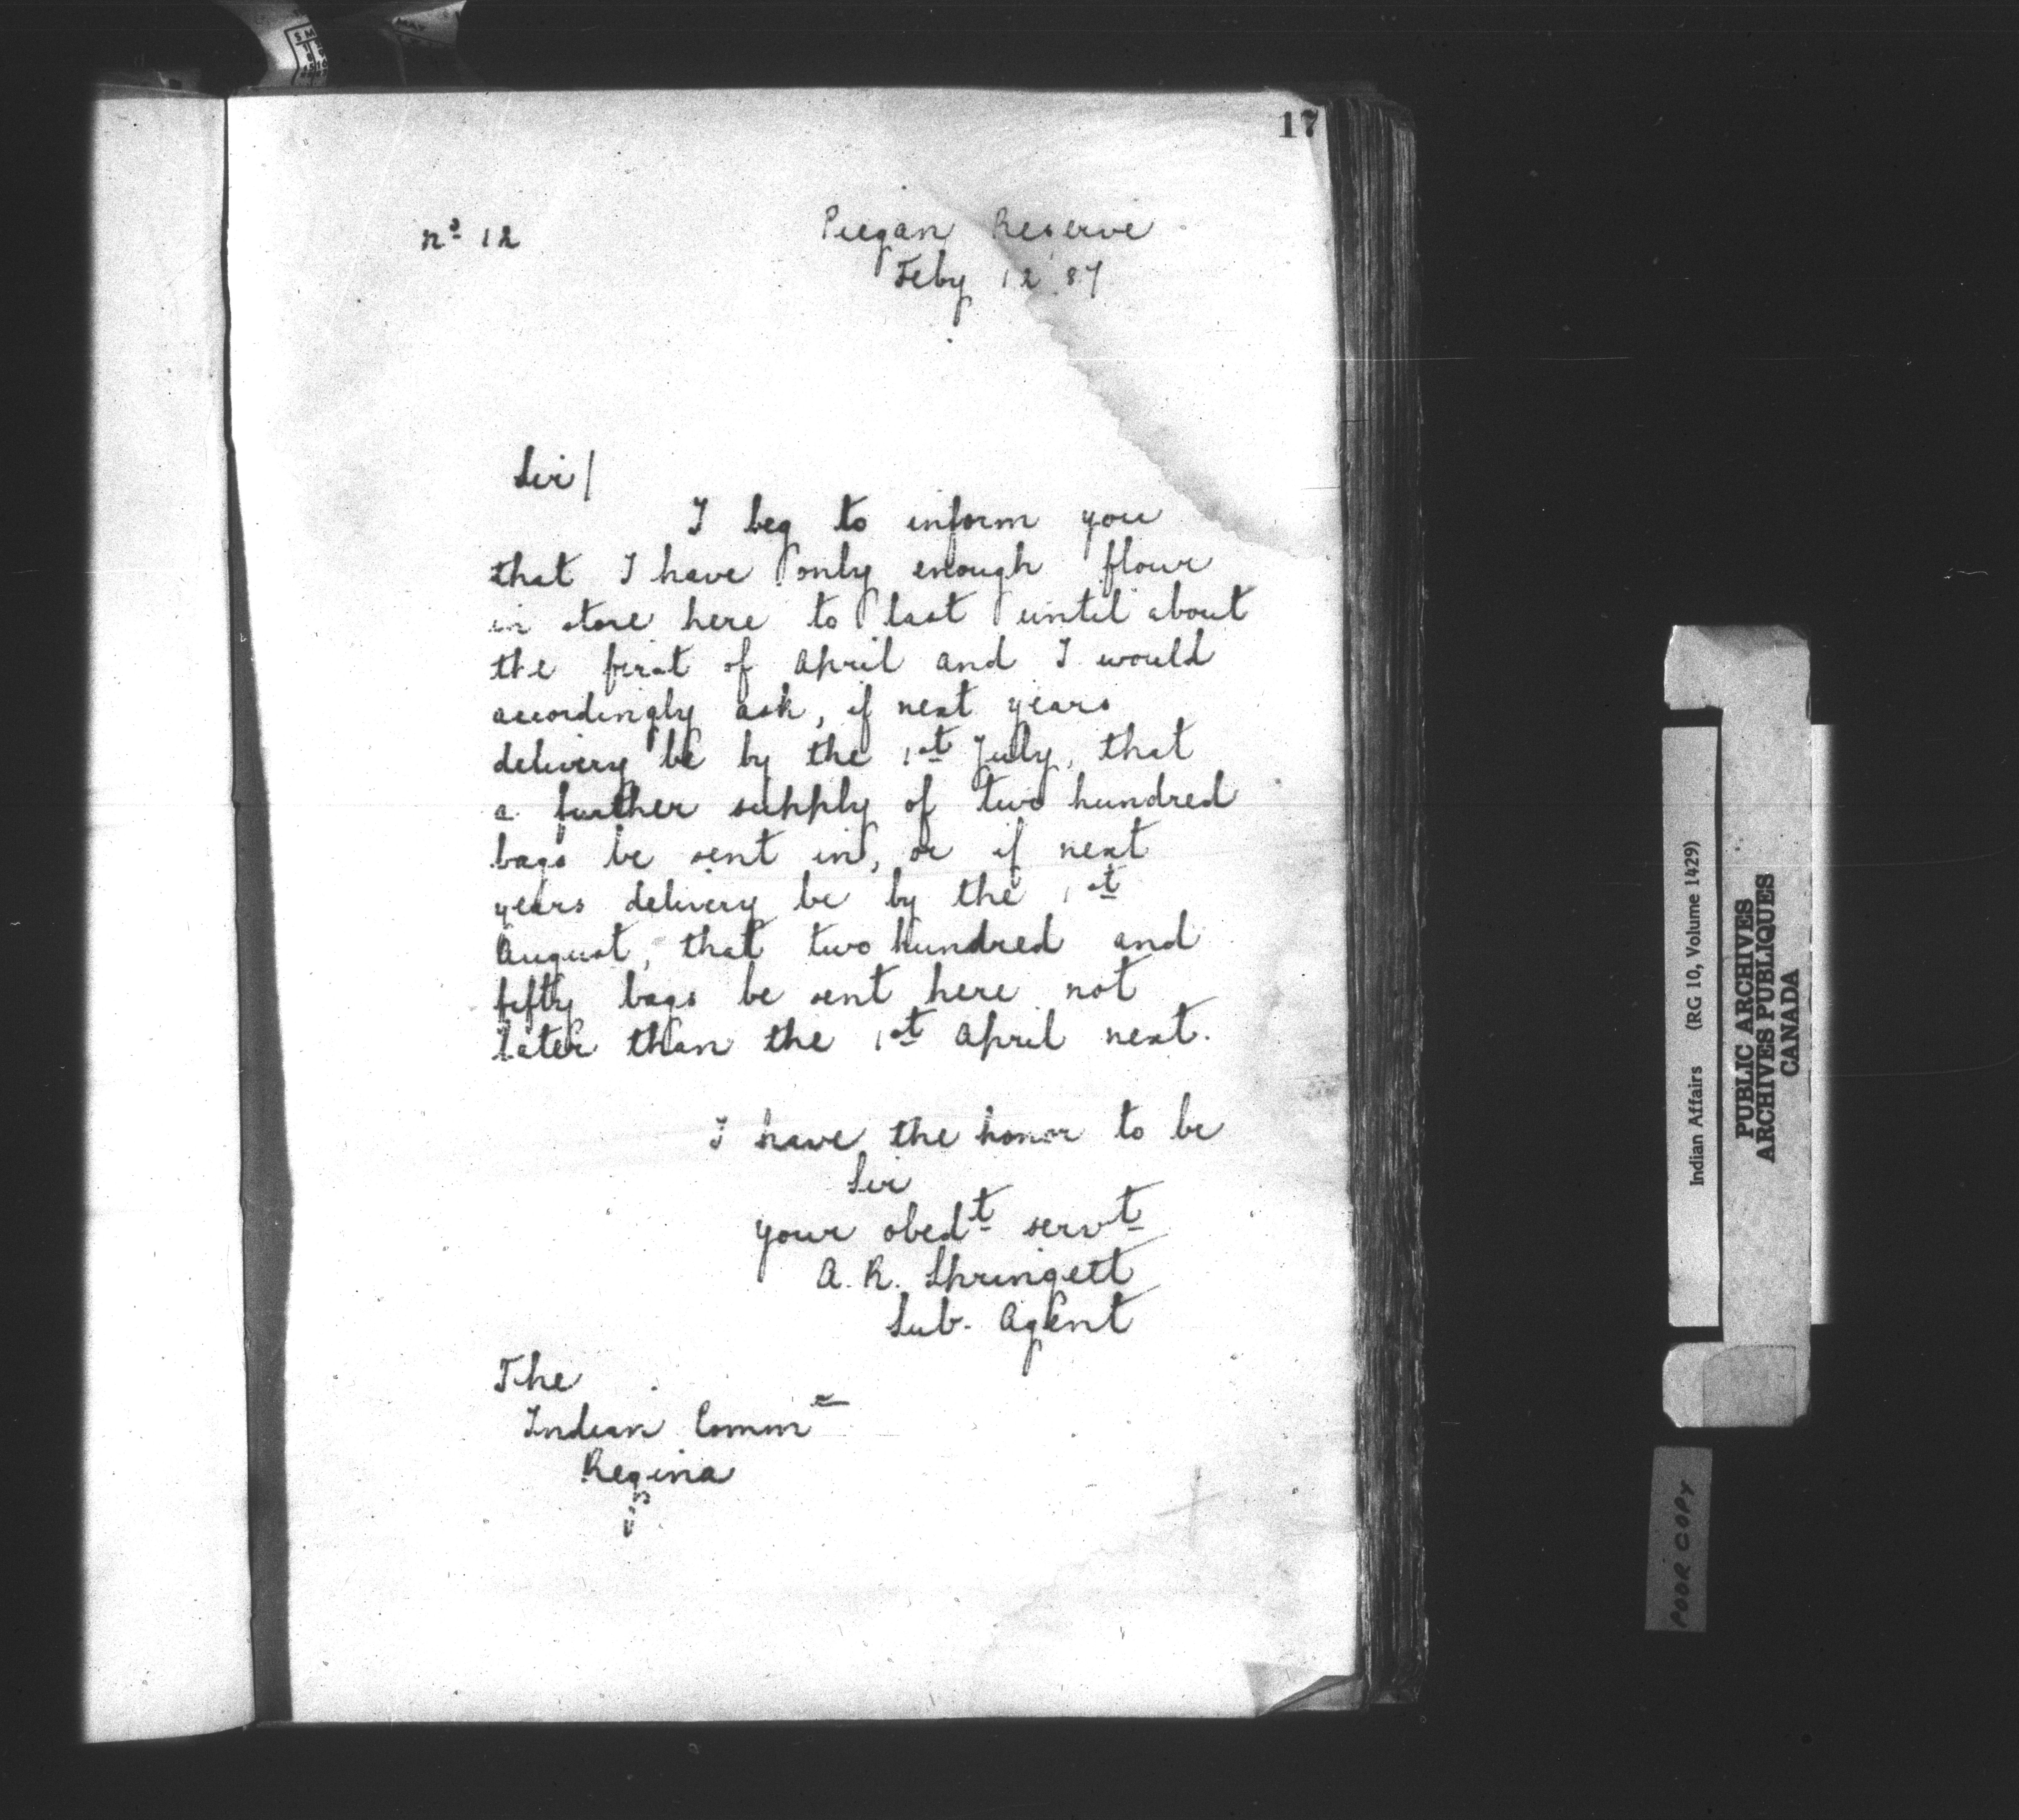 17
No 12
Piegan Reserve
Feby 12 87
Sir/
I beg to inform you
that I have only enough flour
in store here to last until about
the first of April and I would
accordingly ask, if next years
delivery be by the 1st July, that
a further supply of two hundred
bags be sent in, or if next
years delivery be by the 1st
August, that two hundred and
fifty bags be sent here not
later than the 1st April next.
I have the honor to be
Sir
your obedt servt
A. R. Springett
Sub. Agent
The
Indian Commr
Regina
Indian Affairs (RG 10, Volume 1429)
PUBLIC ARCHIVES
ARCHIVES PUBLIQUES
CANADA
POOR COPY